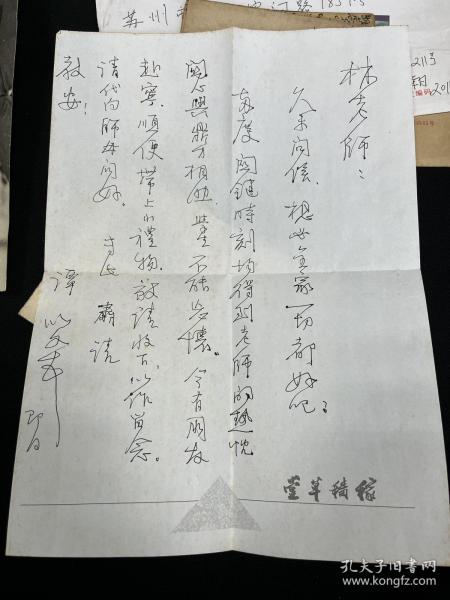 林老师：
久未问候，想必全家一切都好吧？
每度关键时刻均得到老师的热忱
关心与鼎力相助，此生不能忘怀。今有朋友
赴宁，顺便带上小礼物，敬请收下，以作留念。
请代向师母问好。 专此 肃请
教安！
谭
即日
堂草积稼
苏州
河路183
孔夫子旧书网
www.kongfz.com